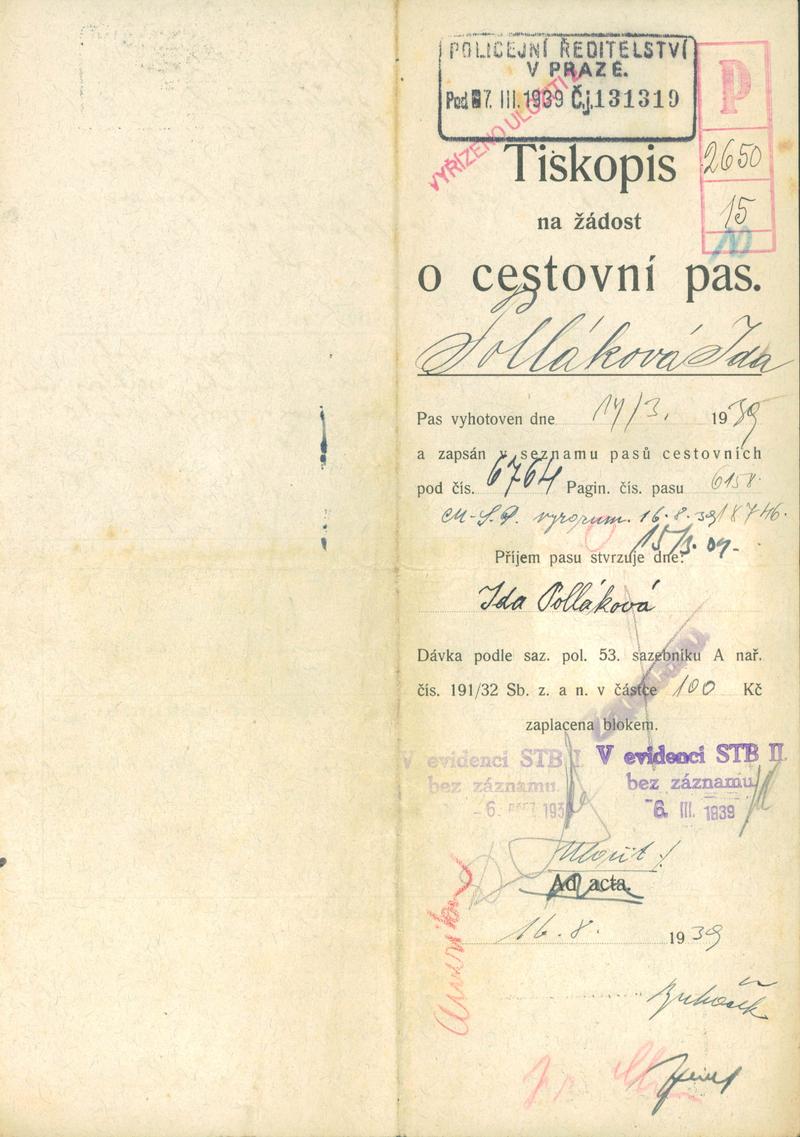 POLICEJNÍ ŘEDITELSTVÍ
V PRAZE.
Pod 7. III. 1939 Č.j. 131319
P
2650
15
VYŘÍZENO
Tiskopis
na žádost
o cestovní pas.
Polláková Ida
Pas vyhotoven dne 14/3. 1939
a zapsán v seznamu pasů cestovních
pod čís. 6764 Pagin. čís. pasu 6158.
16.8.39 18746.
Příjem pasu stvrzuje dne:
Ida Polláková
Dávka podle saz. pol. 53. sazebníku A nař.
čís. 191/32 Sb. z. a n. v částce 100 Kč
zaplacena blokem.
V evidenci STB I.
bez záznamu.
V evidenci STB II.
bez záznamu
6. III. 1939
Ad acta.
16.8. 1939